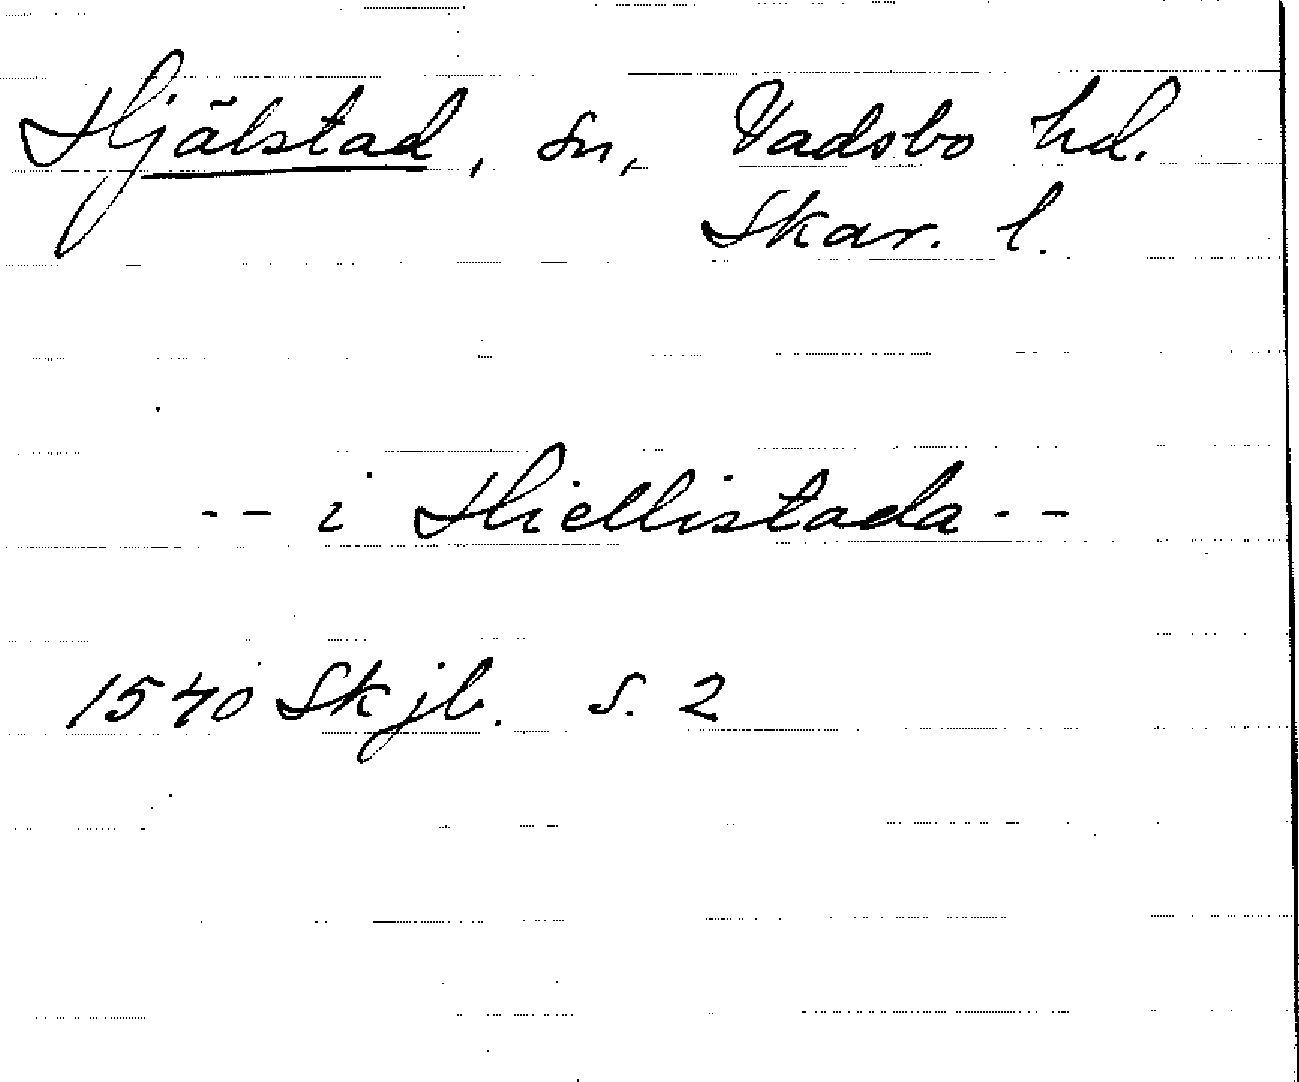 Hjälstad, sn, Vadsbo hd.
Skar. l.
-- i Hiellistada --
1540 Skjb. s. 2